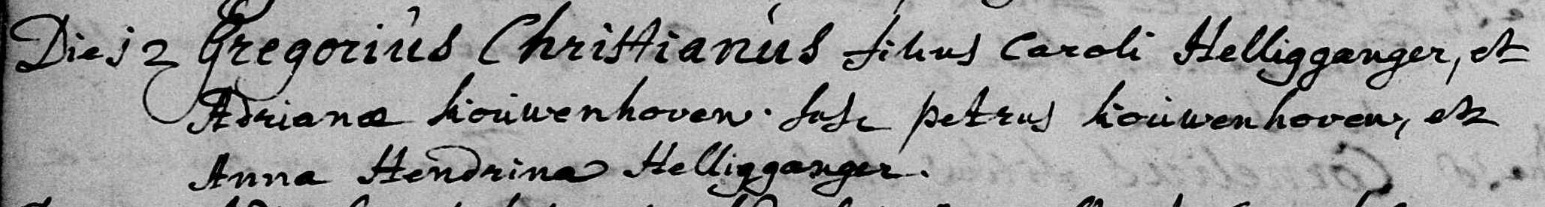 Die 12 Gregoriús Christianús filius Caroli Helligganger, et
Adrianæ Koúwenhoven. Susc petrus Koúwenhoven, et
Anna Hendrina Helligganger.